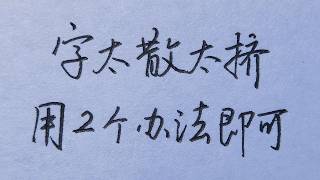 字太散太挤
用2个办法即可